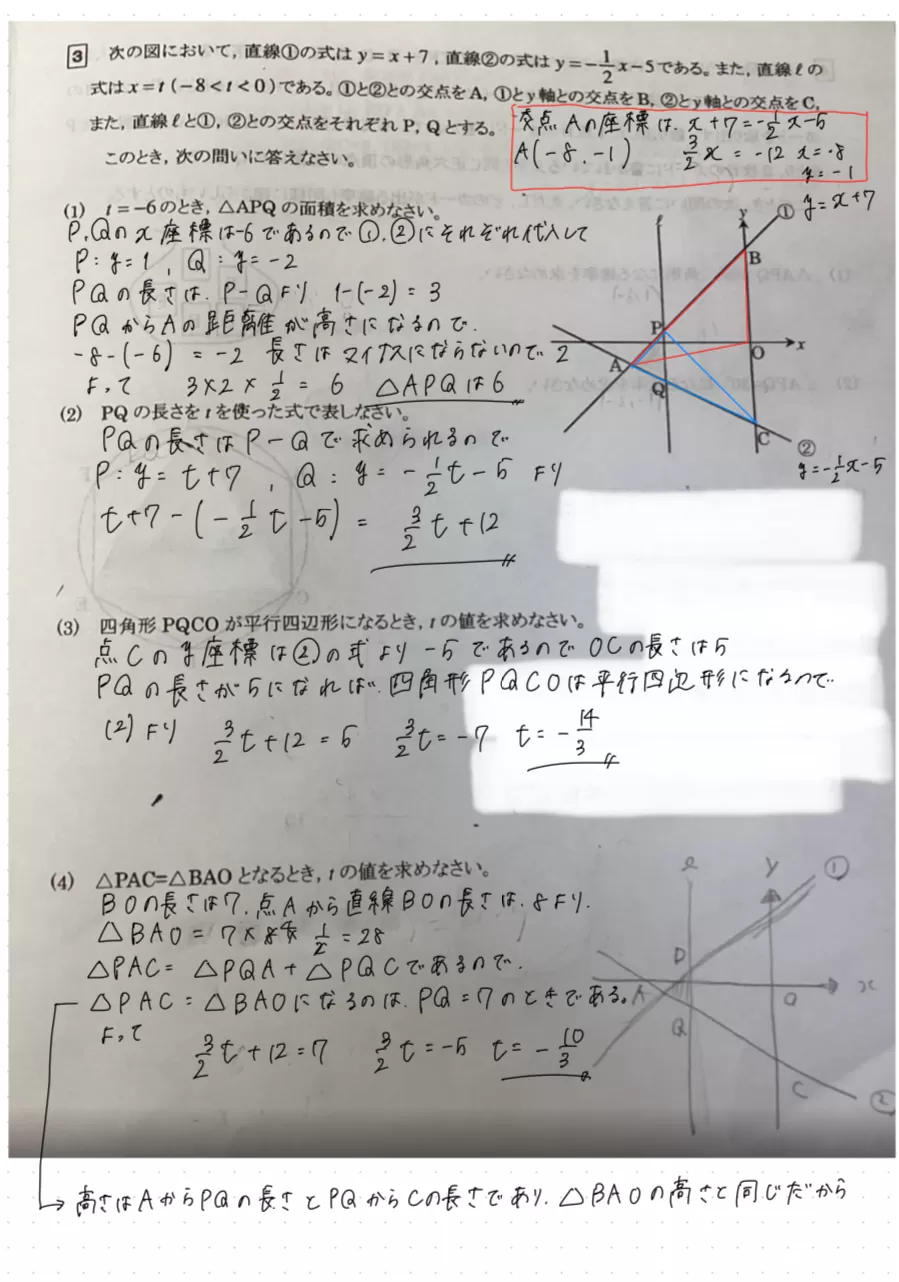 3 次の図において，直線①の式は y=x+7，直線②の式は y=-1/2x-5である。また，直線ℓの
式は x=t (-8<t<0)である。①と②との交点をA，①とy軸との交点をB，②とy軸との交点をC，
また，直線ℓと①，②との交点をそれぞれ P，Qとする。
このとき，次の問いに答えなさい。
交点Aの座標は、x+7=-1/2x-5
A(-8,-1) 3/2x=-12 x=-8
y=-1
(1) t=-6のとき，△APQの面積を求めなさい。
P,Qのx座標は-6であるので①,②にそれぞれ代入して
P:y=1, Q:y=-2
PQの長さは、P-Qより 1-(-2)=3
PQからAの距離が高さになるので、
-8-(-6)=-2 長さはマイナスにならないので2
よって 3×2×1/2=6 △APQは6
① y=x+7
ℓ y
B
P
O x
A
Q
C
② y=-1/2x-5
(2) PQの長さをtを使った式で表しなさい。
PQの長さはP-Qで求められるので
P:y=t+7, Q:y=-1/2t-5 より
t+7-(-1/2t-5)=3/2t+12
(3) 四角形PQCOが平行四辺形になるとき，tの値を求めなさい。
点Cのy座標は②の式より-5であるのでOCの長さは5
PQの長さが5になれば、四角形PQCOは平行四辺形になるので
(2)より 3/2t+12=5 3/2t=-7 t=-14/3
(4) △PAC=△BAOとなるとき，tの値を求めなさい。
BOの長さは7、点Aから直線BOの長さは、8より、
△BAO=7×8×1/2=28
△PAC=△PQA+△PQCであるので、
△PAC=△BAOになるのは、PQ=7のときである。
よって
3/2t+12=7 3/2t=-5 t=-10/3
ℓ y ①
P
A O x
Q
C
②
→高さはAからPQの長さとPQからCの長さであり、△BAOの高さと同じだから